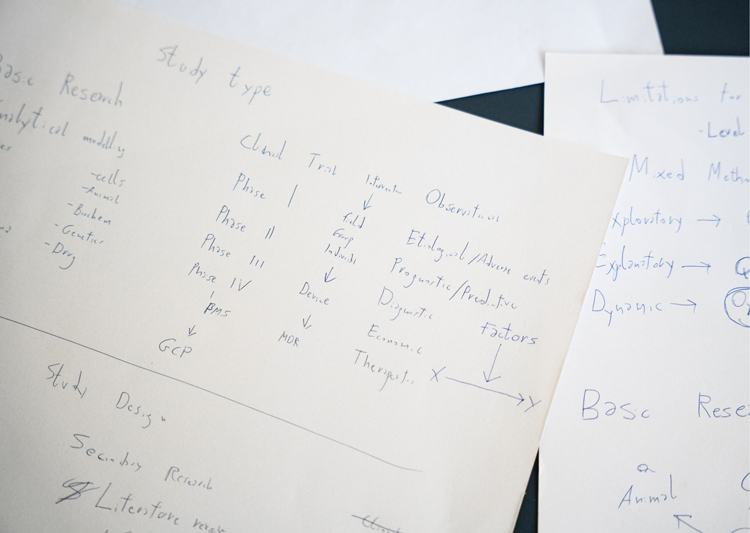 Study type
Basic Research
Analytical
-cells
-Animal
-Biochem
-Genetics
-Drug
Clinical Trial
Phase I
Phase II
Phase III
Phase IV
PMS
GCP
Field
Group
Device
MDR
Observational
Etiological/Adverse events
Prognostic/Predictive
Diagnostic
Economic
Therapeutic
Factors
X → Y
Study Design
Secondary Research
Literature
Limitations for
-Level
Mixed
Exploratory →
Explanatory →
Dynamic →
Basic
Animal